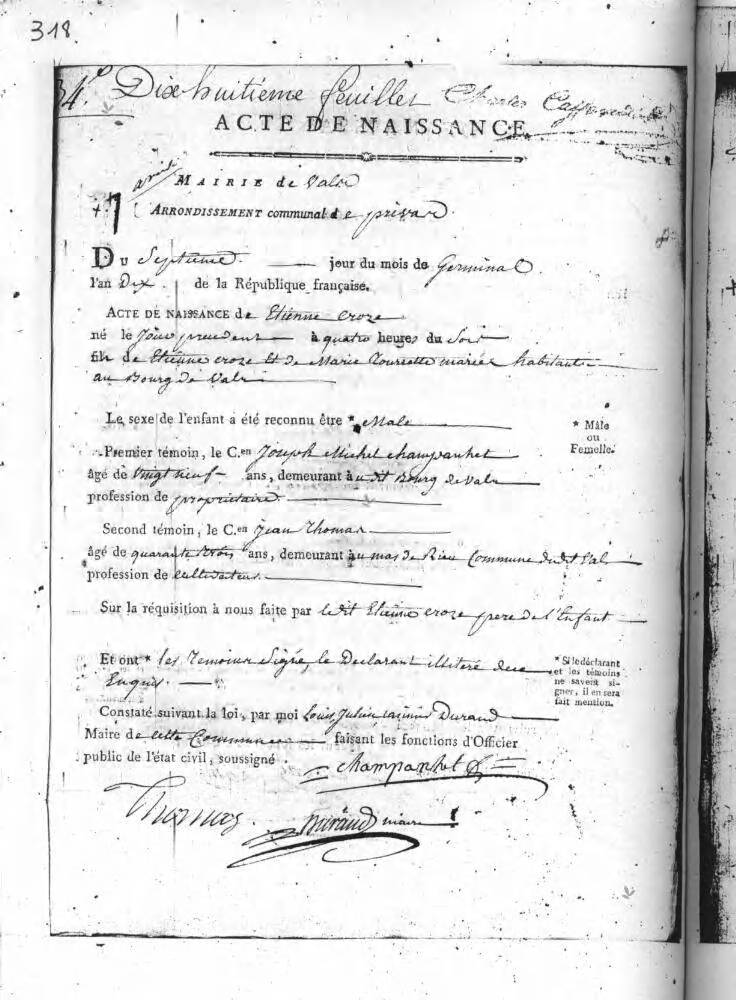 318
34e Dixhuitieme feuillet Charles
ACTE DE NAISSANCE
avril
MAIRIE de Vals
+ 7 ARRONDISSEMENT communal de privas
DU Septieme jour du mois de Germinal
l'an Dix de la République française.
ACTE DE NAISSANCE de Etienne Croze
né le Jour precedent à quatre heures du Soir
fils de Etienne croze Et de Marie mariés habitants
au Bourg de Vals
Le sexe de l'enfant a été reconnu être * Male
* Mâle
ou
Femelle.
Premier témoin, le C.en Joseph Michel champanhet
âgé de Vingt neuf ans, demeurant audit Bourg de Vals
profession de propriétaire
Second témoin, le C.en Jean Thomas
âgé de quarante trois ans, demeurant au mas de Rieu Commune dudit Vals
profession de cultivateur
Sur la réquisition à nous faite par ledit Etienne croze pere de l'Enfant
Et ont * les Temoins Signé, le Declarant illitéré de ce
Enquis.
* Si le déclarant
et les témoins
ne savent si-
gner, il en sera
fait mention.
Constaté suivant la loi, par moi Louis Julien Durand
Maire de cette Commune faisant les fonctions d'Officier
public de l'état civil, soussigné.
champanhet
Thomas
Durand maire